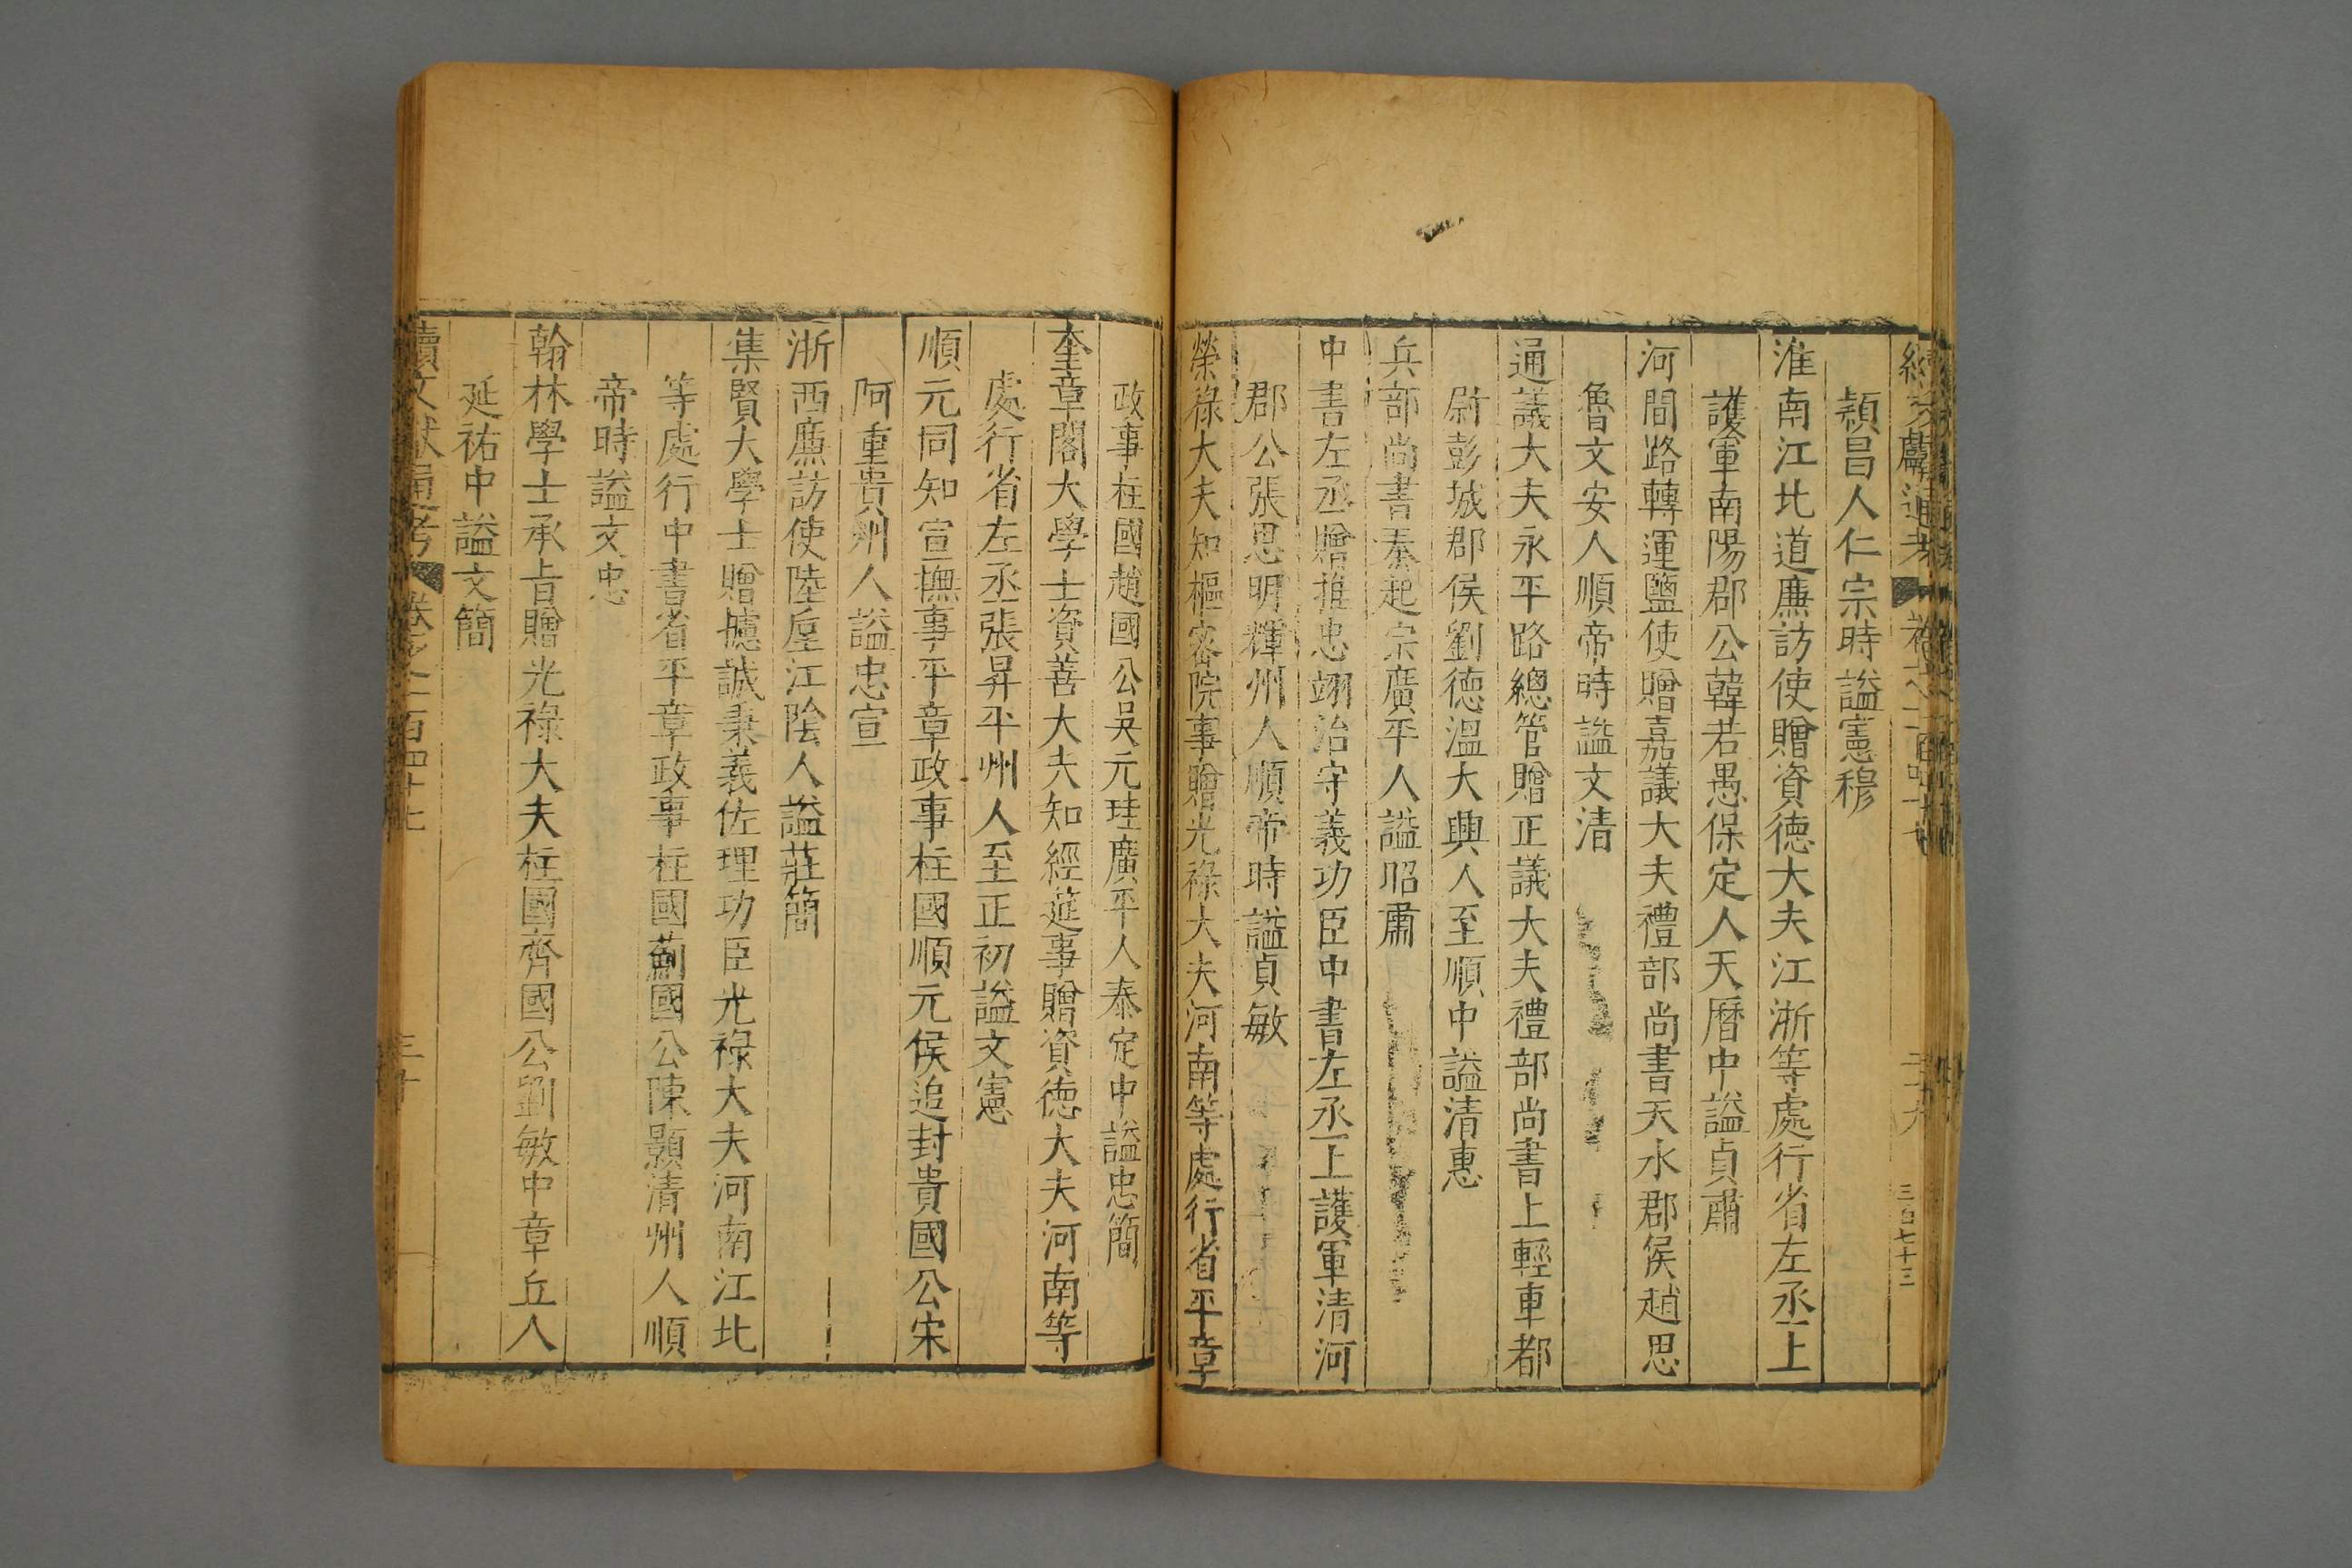 續文獻通考 卷之一百四十七 二十九 三百七十三
潁昌人仁宗時謚憲穆
淮南江北道廉訪使贈資德大夫江浙等處行省左丞上
護軍南陽郡公韓若愚保定人天曆中謚貞肅
河間路轉運鹽使贈嘉議大夫禮部尚書天水郡侯趙思
魯文安人順帝時謚文清
通議大夫永平路總管贈正議大夫禮部尚書上輕車都
尉彭城郡侯劉德溫大興人至順中謚清惠
兵部尚書秦起宗廣平人謚昭肅
中書左丞贈推忠翊治守義功臣中書左丞上護軍清河
郡公張思明輝州人順帝時謚貞敏
榮祿大夫知樞密院事贈光祿大夫河南等處行省平章
政事柱國趙國公吳元珪廣平人泰定中謚忠簡
奎章閣大學士資善大夫知經筵事贈資德大夫河南等
處行省左丞張昇平州人至正初謚文憲
順元同知宣撫事平章政事柱國順元侯追封貴國公宋
阿重貴州人謚忠宣
浙西廉訪使陸垕江陰人謚莊簡
集賢大學士贈攄誠秉義佐理功臣光祿大夫河南江北
等處行中書省平章政事柱國薊國公陳顥清州人順
帝時謚文忠
翰林學士承旨贈光祿大夫柱國齊國公劉敏中章丘人
延祐中謚文簡
續文獻通考 卷之一百四十七 三十